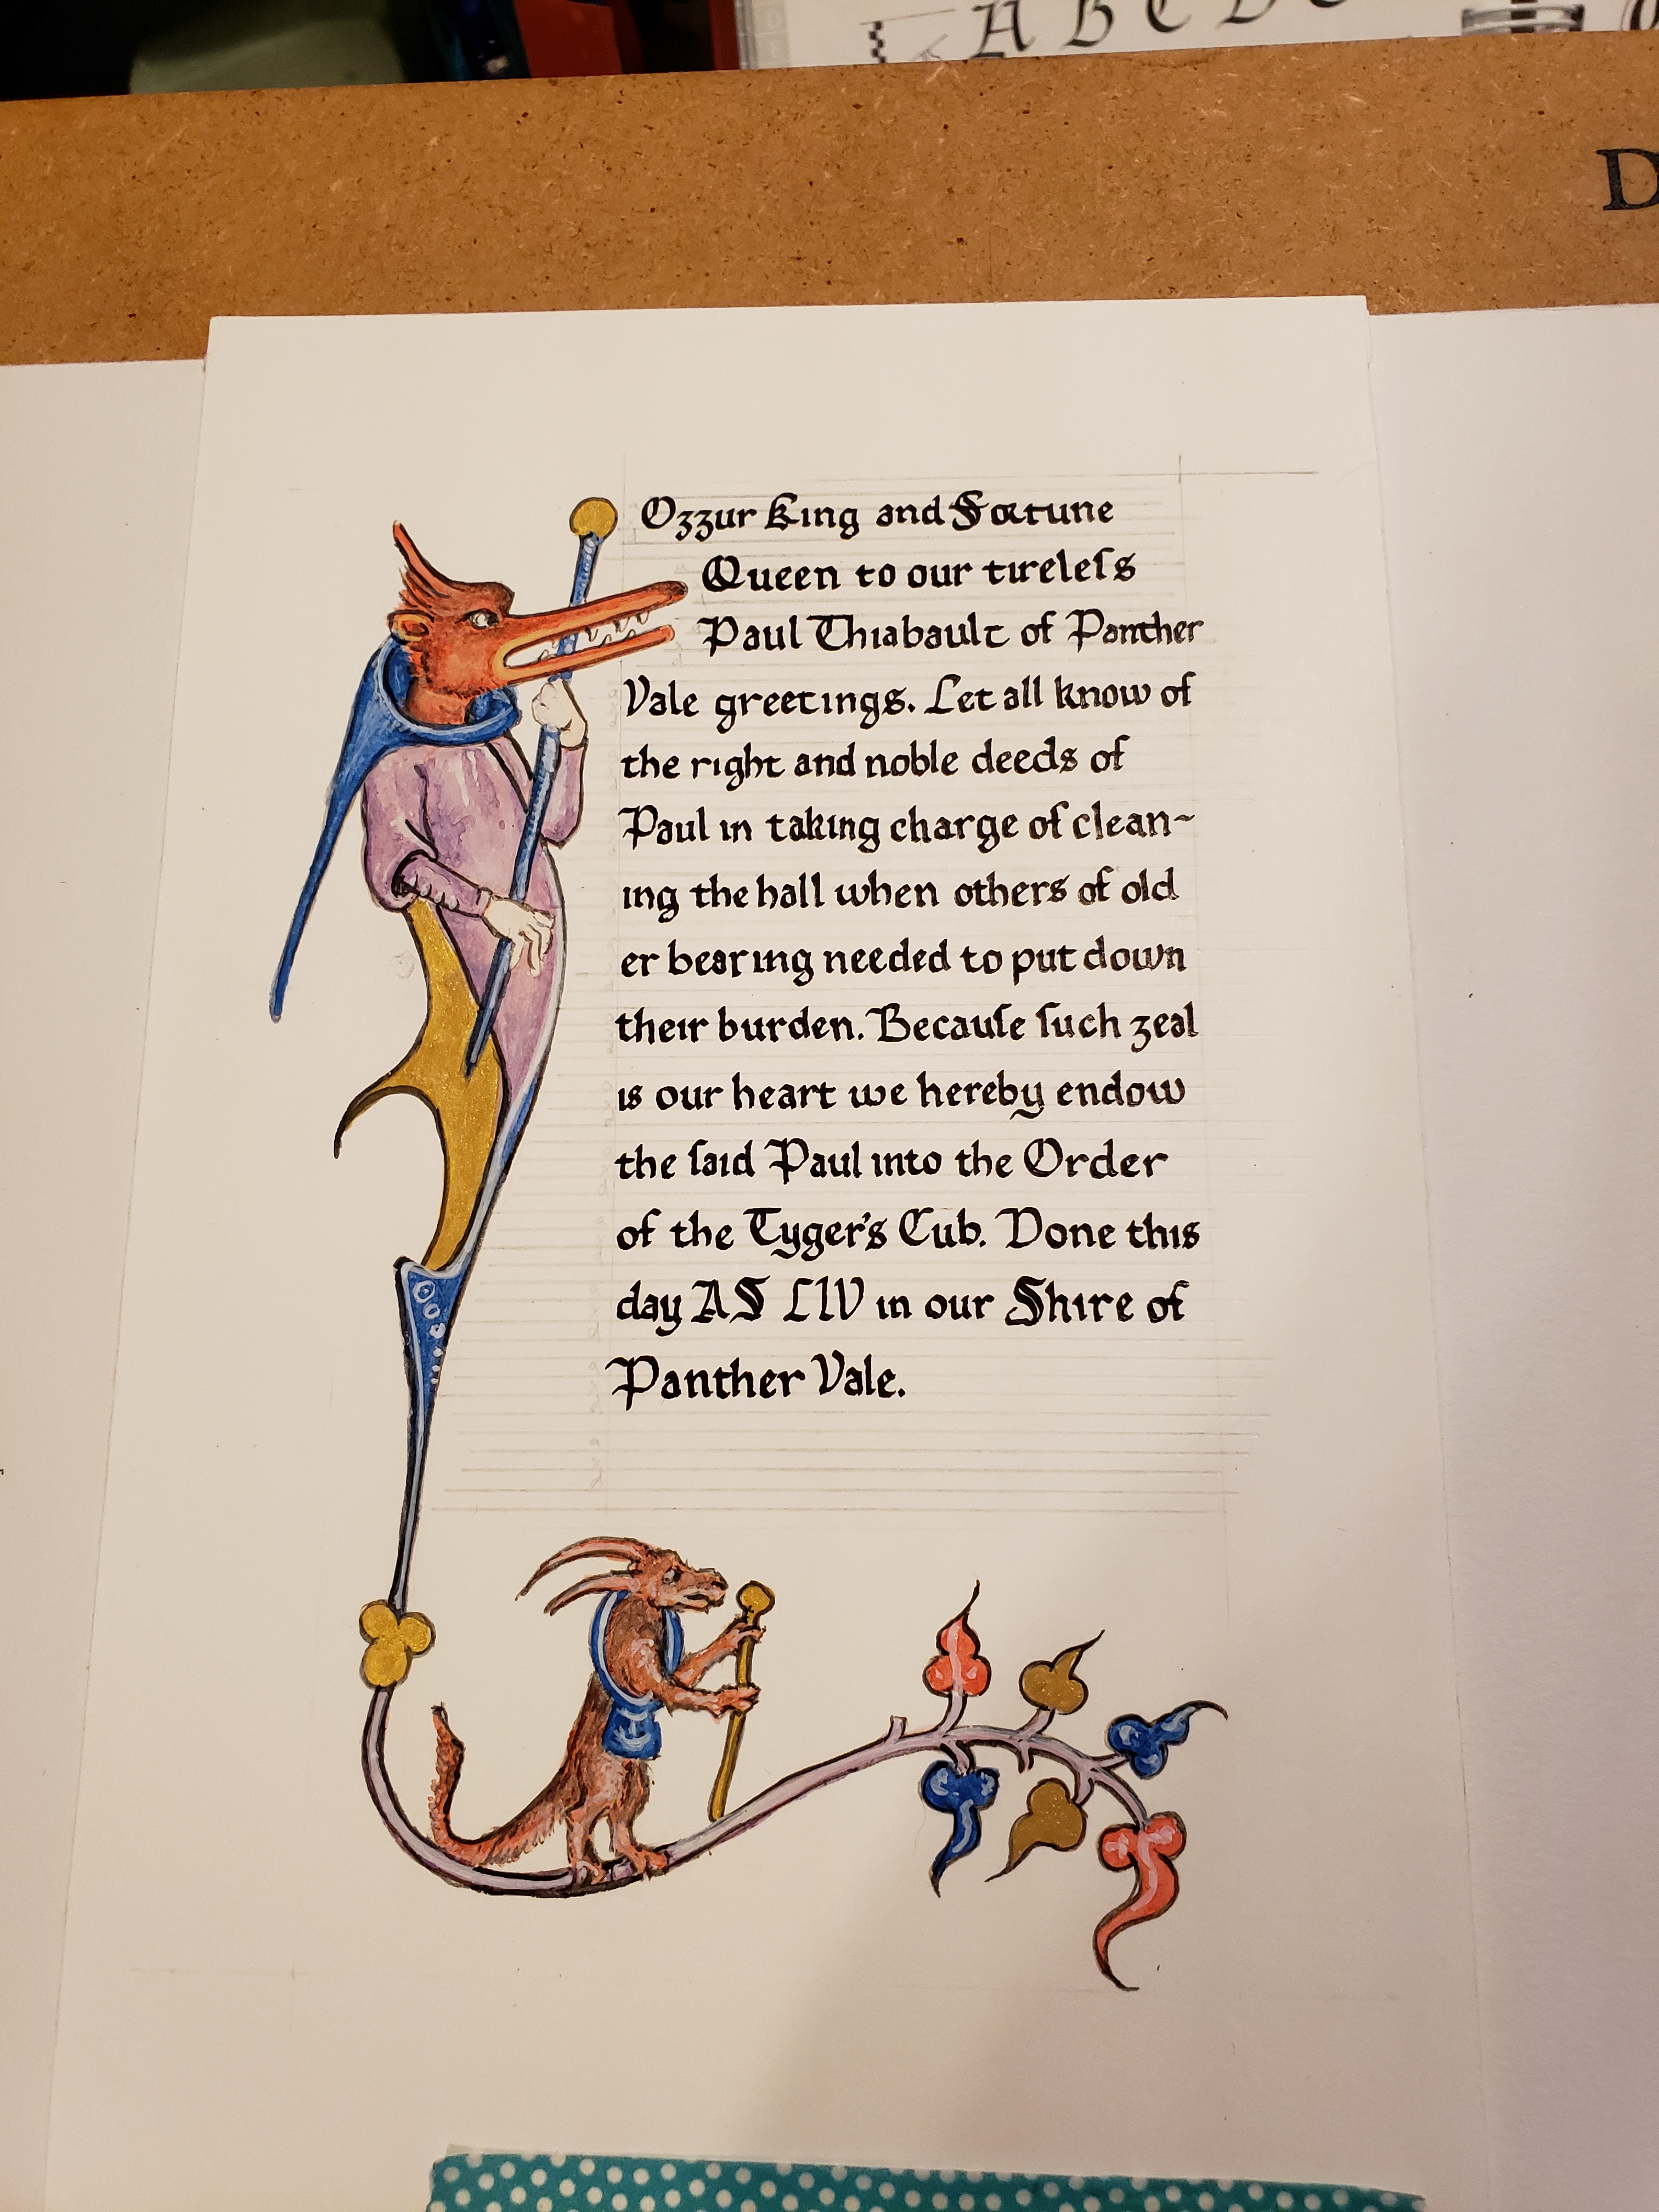 A B C D
D
Ozzur King and Fortune
Queen to our tireleſs
Paul Thiabault of Panther
Vale greetings. Let all know of
the right and noble deeds of
Paul in taking charge of clean~
ing the hall when others of old
er bearing needed to put down
their burden. Becauſe ſuch zeal
is our heart we hereby endow
the ſaid Paul into the Order
of the Tyger's Cub. Done this
day AS LIV in our Shire of
Panther Vale.